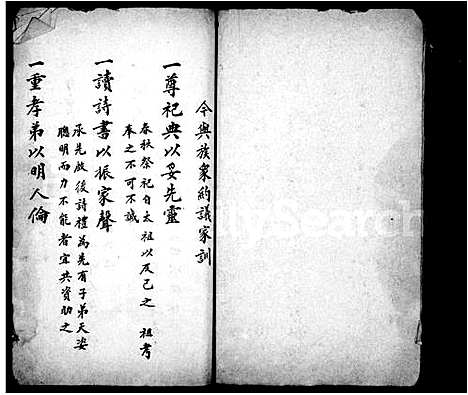 今與族衆約議家訓
一尊祀典以妥先靈
春秋祭祀自太祖以及已之 祖考
奉之不可不誠
一讀詩書以振家聲
承先啟後詩禮為先有子弟天姿
聰明而力不能者宜共資助之
一重孝弟以明人倫